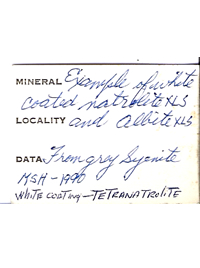 MINERAL Example of white
coated natrolite XLS
LOCALITY and Albite XLS
DATA: From grey Syenite
MSH - 1990
WHITE COATING - TETRANATROLITE